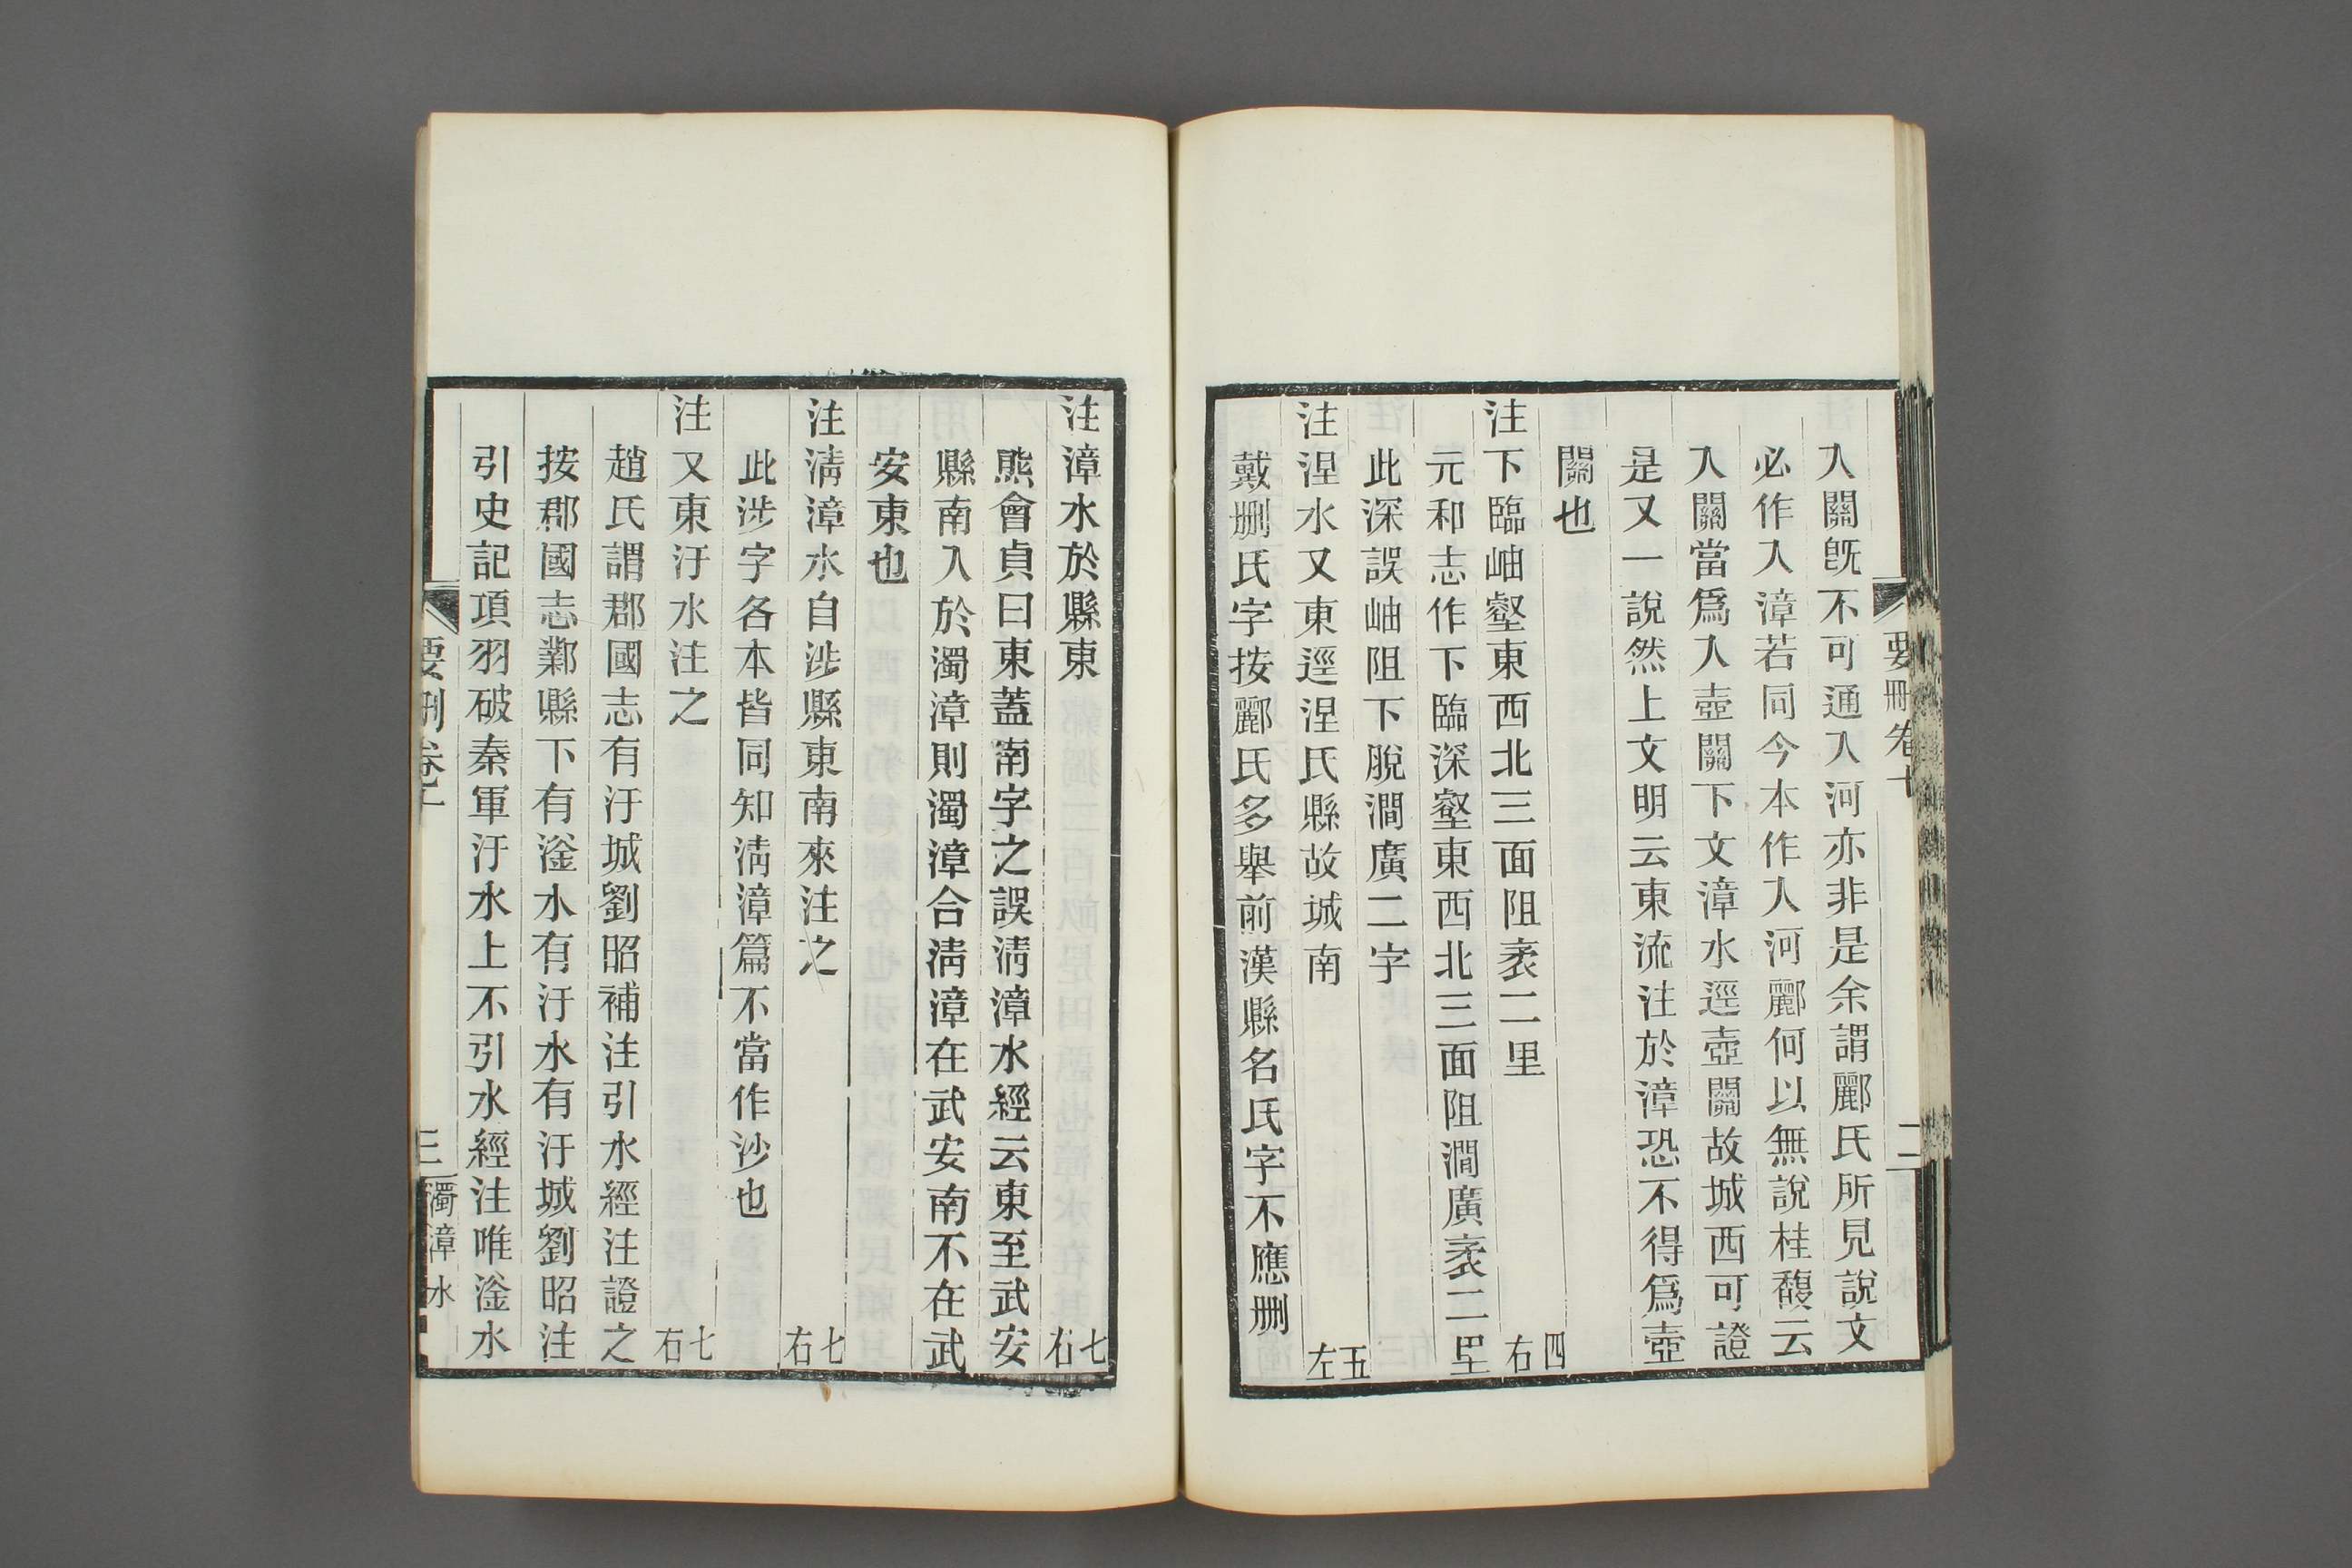 要刪卷十
二
入關旣不可通入河亦非是余謂酈氏所見說文
必作入漳若同今本作入河酈何以無說桂馥云
入關當爲入壺關下文漳水逕壺關故城西可證
是又一說然上文明云東流注於漳恐不得爲壺
關也
注下臨岫壑東西北三面阻袤二里 四右
元和志作下臨深壑東西北三面阻澗廣袤二里
此深誤岫阻下脫澗廣二字
注涅水又東逕涅氏縣故城南 五左
戴刪氏字按酈氏多舉前漢縣名氏字不應刪
注漳水於縣東 七右
熊會貞曰東蓋南字之誤淸漳水經云東至武安
縣南入於濁漳則濁漳合淸漳在武安南不在武
安東也
注淸漳水自涉縣東南來注之 七右
此涉字各本皆同知淸漳篇不當作沙也
注又東汙水注之 七右
趙氏謂郡國志有汙城劉昭補注引水經注證之
按郡國志鄴縣下有滏水有汙水有汙城劉昭注
引史記項羽破秦軍汙水上不引水經注唯滏水
要刪卷十
三
濁漳水